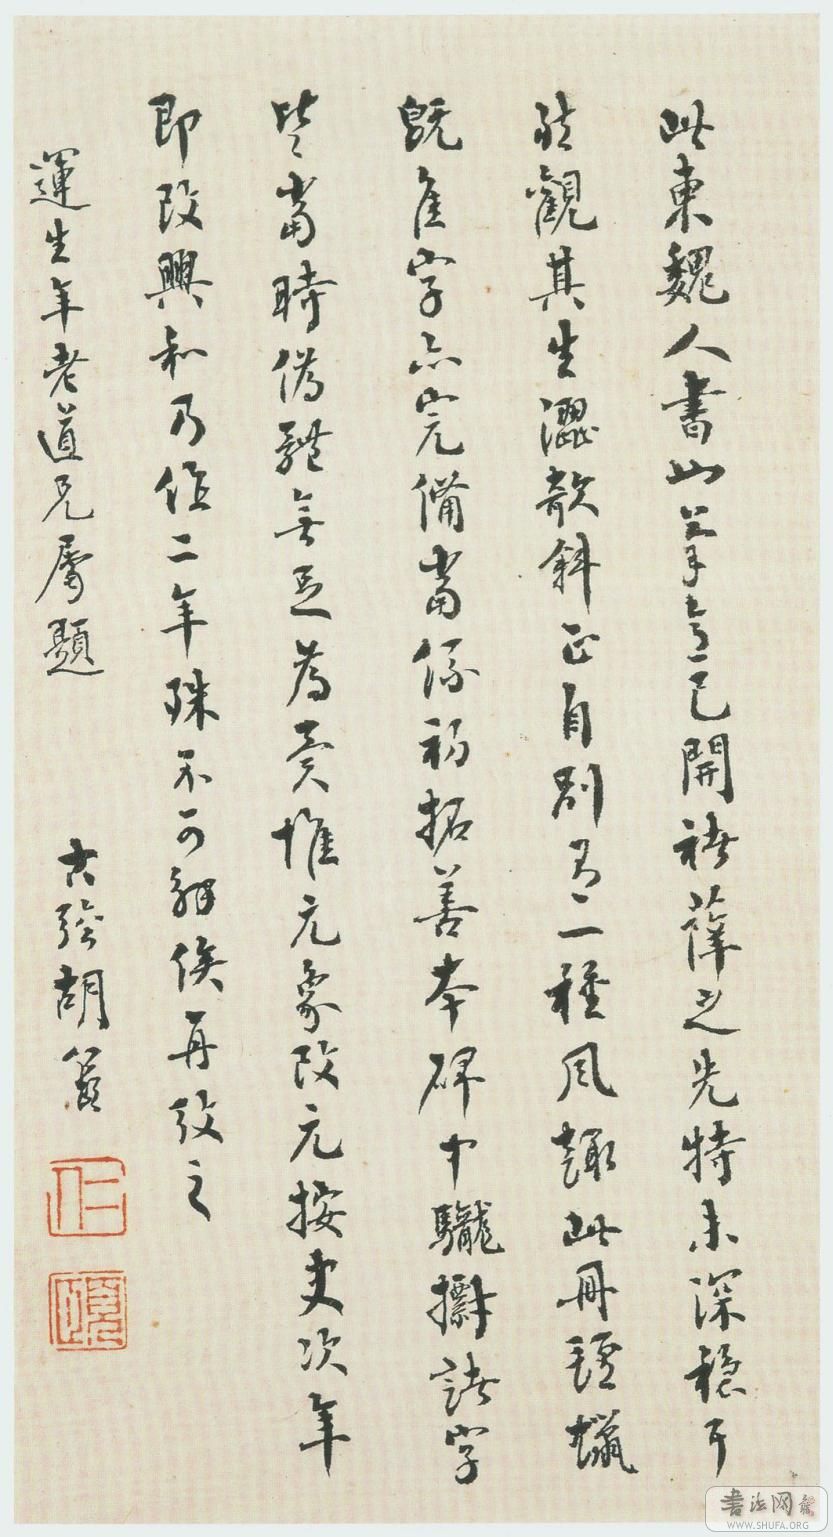 此東魏人書也筆意已開褚薛之先特未深穩耳
然觀其生澀欹斜正自別有一種風趣此冊氈蠟
既佳字亦完備當係初拓善本碑中諸字
皆當時偽體無足為異惟元象改元按史次年
即改興和乃作二年殊不可解俟再攷之
運生年老道兄屬題
古胡
書法网
WWW.SHUFA.ORG